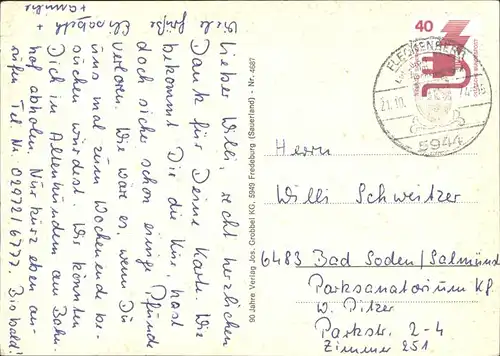 Lieber Willi, recht herzlichen
Dank für Deine Karte. Wie
bekommt Dir die Kur, hast
doch sicher schon einige Pfunde
verloren. Wie wäre es, wenn Du
uns mal zum Wochenende be-
suchen würdest. Wir könnten
Dich in Altenhundem am Bahn-
hof abholen. Nur kurz eben an-
rufen Tel. Nr. 02972/6777. Bis bald!
Viele Grüße
Elisabeth
+ Familie
90 Jahre Verlag Jos. Grobbel KG, 5949 Fredeburg (Sauerland) - Nr. 4587
40
FLECKENBERG
21.10.
5944
Herrn
Willi Schweitzer
6483 Bad Soden/Salmünst
Parksanatorium Kf
W. Pitzer
Parkstr. 2-4
Zimmer 251